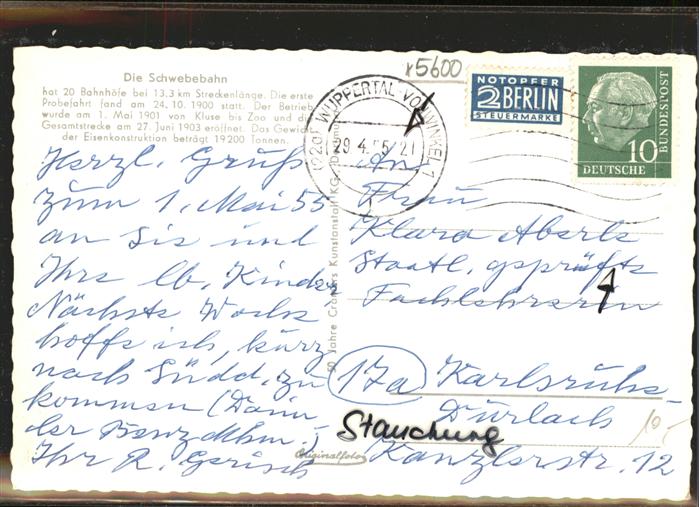 Die Schwebebahn
hat 20 Bahnhöfe bei 13.3 km Streckenlänge. Die erste
Probefahrt fand am 24. 10. 1900 statt. Der Betrieb
wurde am 1. Mai 1901 von Kluse bis Zoo und die
Gesamtstrecke am 27. Juni 1903 eröffnet. Das Gewicht
der Eisenkonstruktion beträgt 19200 Tonnen.
Herzl. Gruß
zum 1. Mai 55
an Sie und
Ihre lb. Kinder
Nächste Woche
hoffe ich, kurz
nach Südd. zu
kommen (Daim
ler Benz
Ihr R. Gerisch
x5600
(22a) WUPPERTAL-VOHWINKEL 1
29.4.55-21
NOTOPFER
2 BERLIN
STEUERMARKE
10
DEUTSCHE
BUNDESPOST
50 Jahre Cramers Kunstanstalt KG, Dortmund
An
Frau
Klara Aberle
Staatl. geprüfte
Fachlehrerin
17a Karlsruhe-
Durlach
Kanzlerstr. 12
Stauchung
Originalfoto
10,-